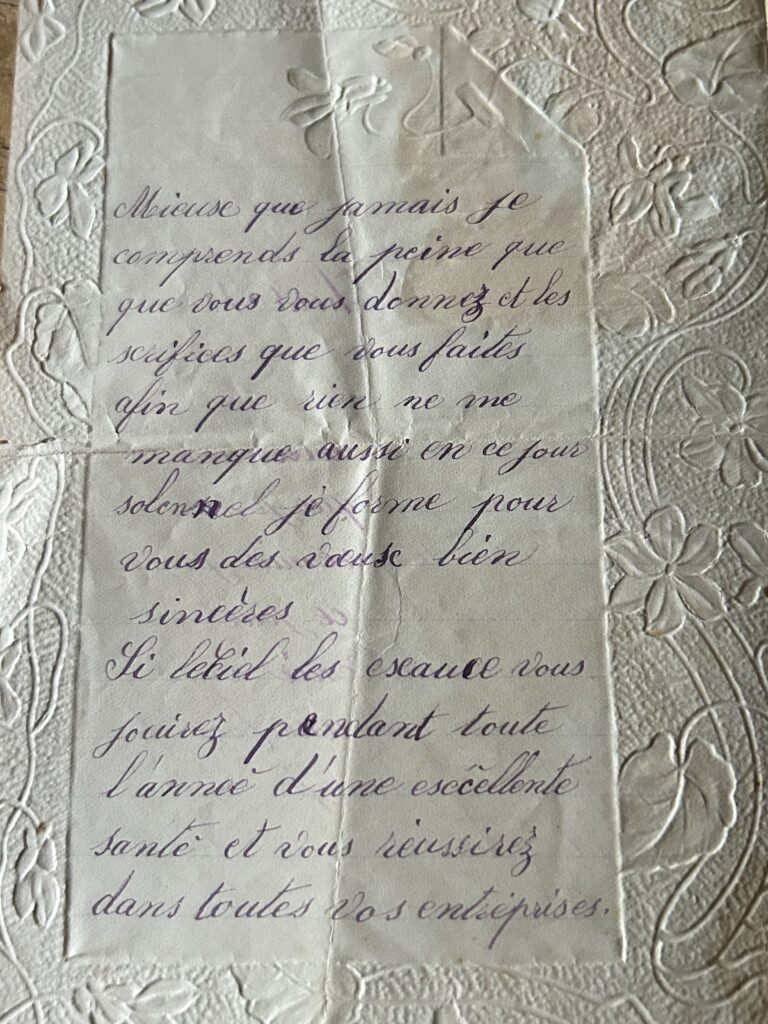 Mieuse que jamais je
comprends la peine que
que vous vous donnez et les
scrifices que vous faites
afin que rien ne me
manque aussi en ce jour
solennel je forme pour
vous des vœux bien
sincères
Si leciel les exauce vous
jouirez pendant toute
l'anneé d'une exécellente
santé et vous réussirez
dans toutes vos entréprises.